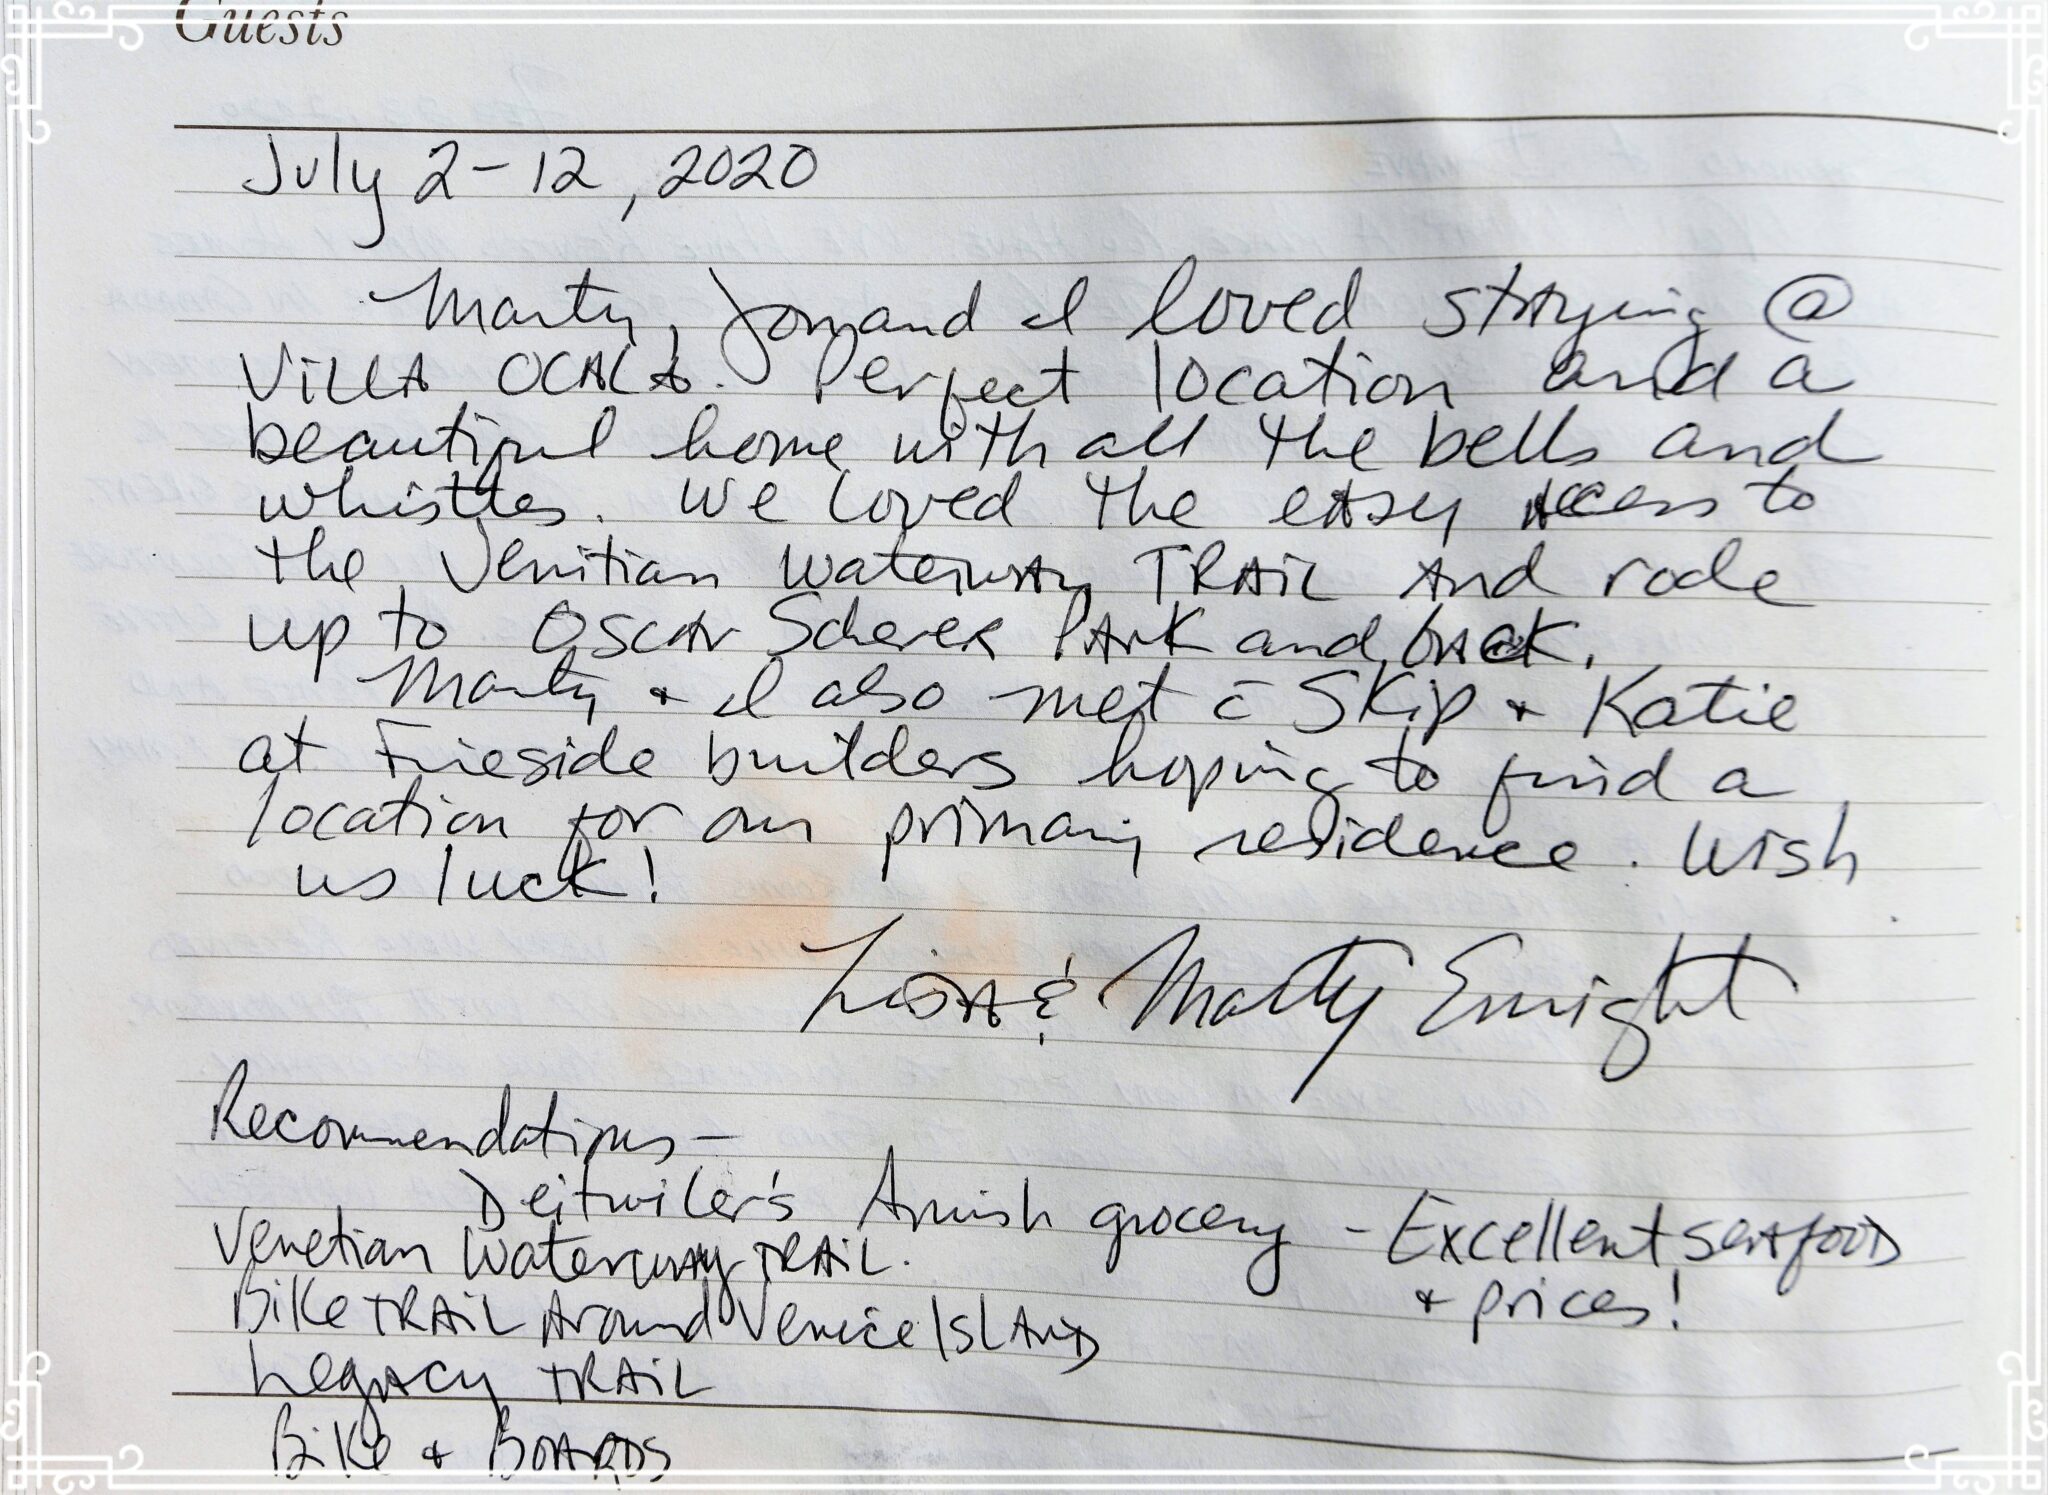 Guests
July 2-12, 2020
Marty, Jon and I loved staying @
Villa Ocala. Perfect location and a
beautiful home with all the bells and
whistles. We loved the easy access to
the Venitian Waterway TRAIL And rode
up to Oscar Scherer Park and back.
Marty + I also met c̄ Skip + Katie
at Fireside builders hoping to find a
location for our primary residence. Wish
us luck!
Lisa & Marty Enright
Recommendations -
Deitwiler's Amish grocery - Excellent seafood
+ prices!
Venetian Waterway TRAIL.
Bike TRAIL Around Venice Island
Legacy TRAIL
Bike + Boards